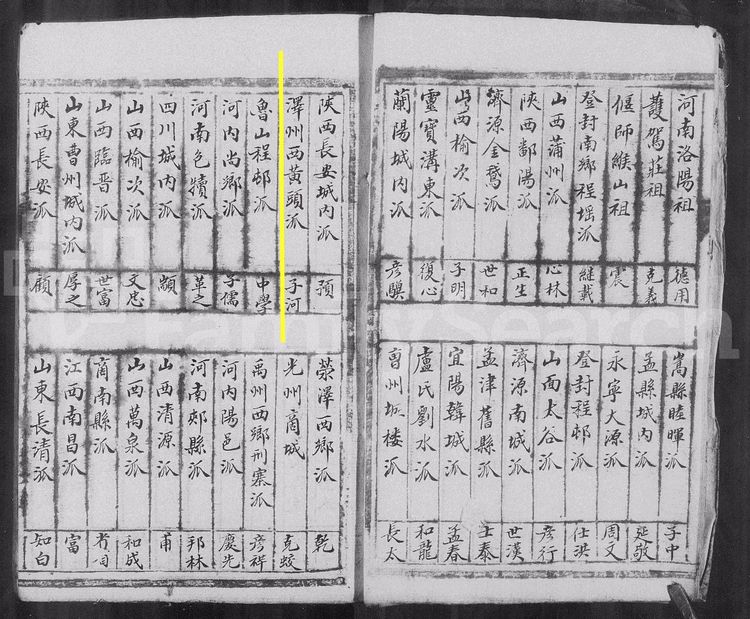 河南洛陽祖 德用
護駕莊祖 克義
偃師緱山祖 震
登封南鄉程㙂派 繼載
山西蒲州派 心林
陝西鄱陽派 正生
濟源金鵞派 世和
山西榆次派 子明
靈寶溝東派 復心
蘭陽城內派 彥驥
嵩縣陸暉派 子中
孟縣城內派 延敬
永寧大源派 周文
登封程邨派 仕洪
山西太谷派 彥行
濟源南城派 世漢
孟津舊縣派 士泰
宜陽韓城派 孟春
盧氏劉水派 和龍
曹州城樓派 長太
陝西長安城內派 預
澤州西黃頭派 子河
魯山程邨派 中學
河內尚鄉派 子儒
河南邑犢派 革之
四川城內派 顓
山西榆次派 文忠
山西臨晋派 世富
山東曹州城內派 厚之
陝西長安派 顧
滎澤西鄉派 乾
光州商城 克蛟
禹州西鄉刑寨派 彥祥
河內陽邑派 慶先
河南郟縣派 邦林
山西清源派 甫
山西萬泉派 和成
商南縣派
江西南昌派 富
山東長清派 知白
FamilySearch